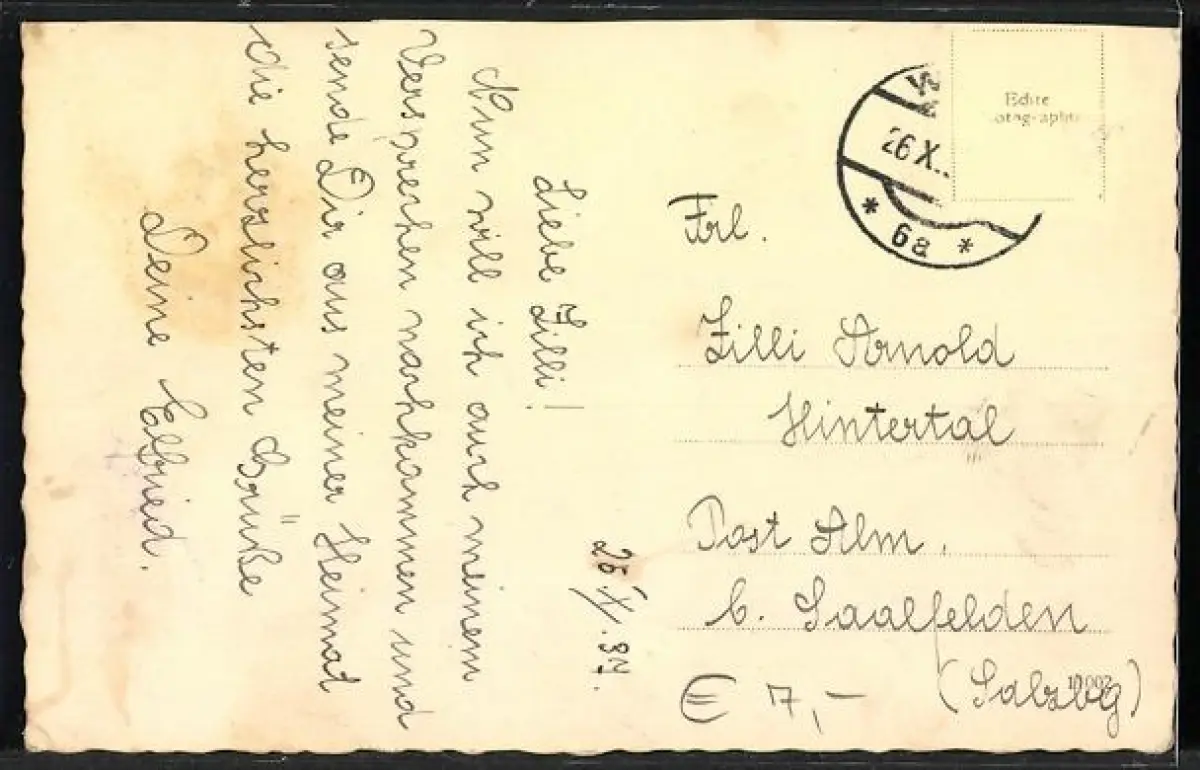 25.X.37.
Liebe Zilli!
Nun will ich auch meinem
Versprechen nachkommen und
sende Dir aus meiner Heimat
die herzlichsten Grüße
Deine Elfried.
Edite
W
26.X.
* 6a *
Frl.
Zilli Arnold
Hintertal
Post Alm,
b. Saalfelden
(Salzbg)
€ 7,-